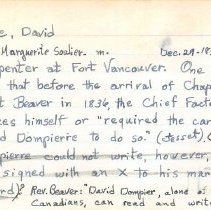 e, David
Marguerite Soulier. m. Dec. 24-18
penter at Fort Vancouver. One
that before the arrival of Chap
t Beaver in 1836, the Chief Facto
es himself or "required the car
d Dompierre to do so." (Jesset).
pierre could not write, however,
signed with an X to his mar
rd)? Rev. Beaver: "David Dompier, alone o
Canadians, can read and write